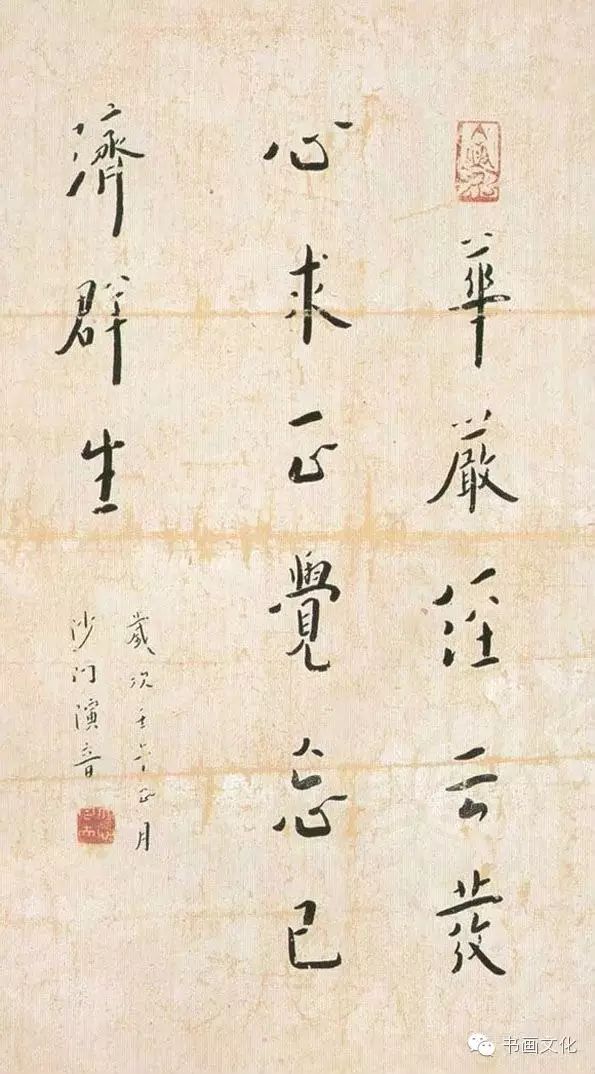 華嚴經云發
心求正覺忘己
濟群生
歲次壬午正月
沙門演音
书画文化